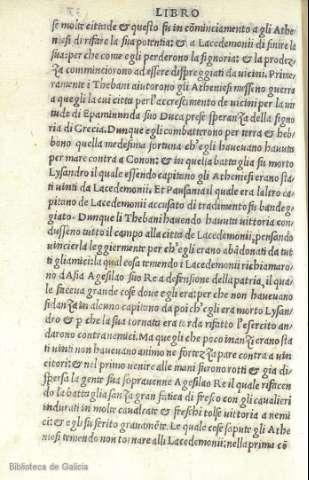 LIBRO
se molte cittade & questo fu incōminciamento a gli Athe
niesi di rifare la sua potentia: & a Lacedemonii di finire la
sua: per che come egli perderono la signoria: & la prodez
za comminciorono ad essere dispreggiati da vicini. Prime
ramente i Thebani aiutorono gli Atheniesi mosseno guerra
a quegli la cui citta per l'accrescimento de vicini per la vir
tude di Epaminunda suo Duca prese speranza della signo
ria di Grecia. Dunque egli combatterono per terra & heb
bono quella medesima fortuna ch'egli havevano havuta
per mare contra a Conon: & in quella battaglia fu morto
Lysandro il quale essendo capitano gli Atheniesi erano sta
ti vinti da Lacedemonii. Et Pausania il quale era l'altro ca
pitano de Lacedemonii accusato di tradimento fu bandeg
giato. Dunque li Thebani havendo havuta vittoria con
dusseno tutto il campo alla citta de Lacedemonii, pensando
vincerla leggiermente per ch'egli erano abādonati da tut
ti gli amici: la qual cosa temendo i Lacedemonii richiamaro
no d'Asia Agesilao suo Re a defensione della patria, il qua
le faceva grande cose dove egli era: per che non havevano
fidanza in alcuno capitano da poi ch'egli era morto Lysan
dro & p che la sua tornata era tarda rifatto l'esercito an
darono contra nemici. Ma quegli che poco inanzi erano sta
ti vinti non havevano animo ne fortezza pare contra a vin
citori: & nel primo venire alle mani furono rotti & gia di
spersa la gente sua sopravenne Agesilao Re il quale rifacen
do la battaglia sanza gran fatica di fresco con gli cavalieri
indurati in molte cavalcate & freschi tolse vittoria a nemi
ci: & egli fu ferito gravemēte. Le quale cose sapute gli Athe
niesi temendo non tornare alli Lacedemonii, nella prima cō
Biblioteca de Galicia